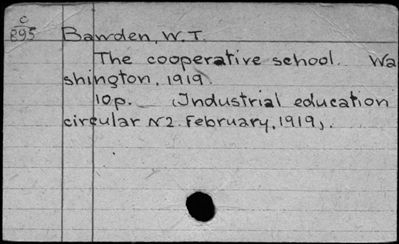 C
895
Bawden, W.T.
The cooperative school. Wa
shington, 1919.
10p. (Industrial education
circular N2. February, 1919).